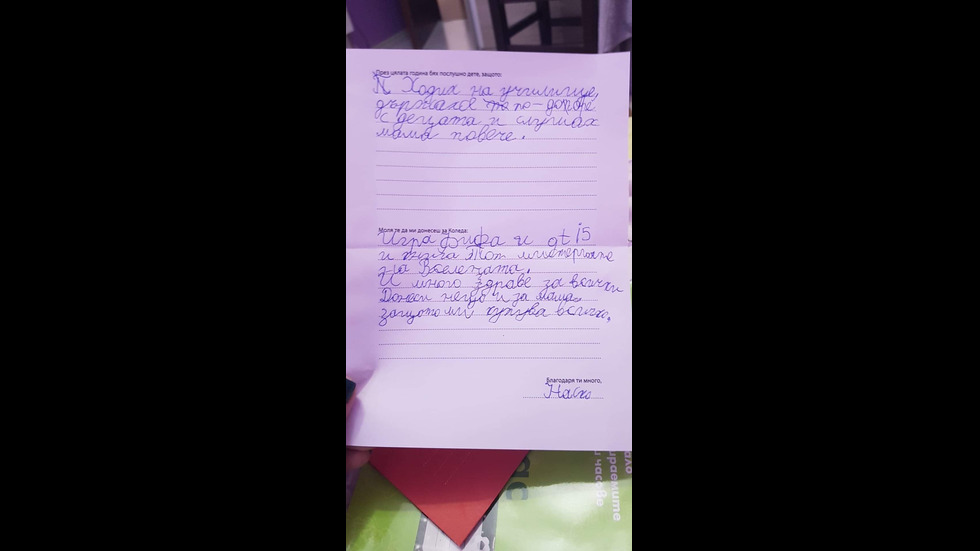 През цялата година бях послушно дете, защото:
Ходих на училище,
държахсе по-добре
с децата и слушах
мама повече.
Моля те да ми донесеш за Коледа:
Игра Фифа и gt i5
и книга Топ мистерияте
на Вселената.
И много здраве за всички
Донеси нещо и за мама,
защото ми купува всичко.
Благодаря ти много,
Наско
ас
ираемите
и часово